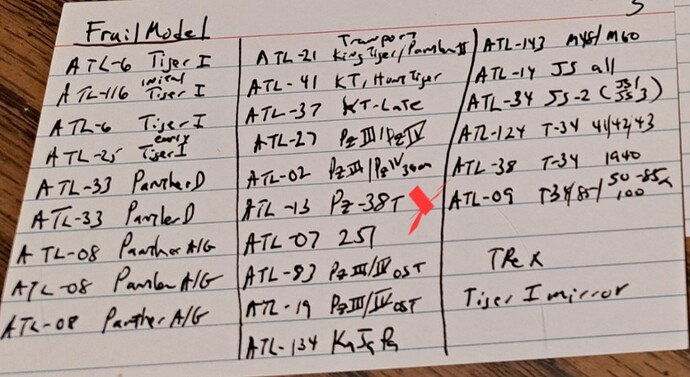 5
Fruil Model
ATL-6 Tiger I
inital
ATL-116 Tiger I
ATL-6 Tiger I
early
ATL-25 Tiger I
ATL-33 Panther D
ATL-33 Panter D
ATL-08 Panther A/G
ATL-08 Panther A/G
ATL-08 Panther A/G
Transport
ATL-21 King Tiger/Panther II
ATL-41 KT, Hunt Tiger
ATL-37 KT-Late
ATL-27 Pz III/Pz IV
ATL-02 Pz III/Pz IV 36cm
ATL-13 Pz-38T
ATL-07 251
ATL-83 Pz III/IV OST
ATL-19 Pz III/IV OST
ATL-134 Kg Jg Pz
ATL-143 M48/M60
ATL-14 JS all
ATL-34 JS-2 (JS1/JS3)
ATL-124 T-34 41/42/43
ATL-38 T-34 1940
ATL-09 T34/85/ 50-85a
100
TRex
Tiger I mirror